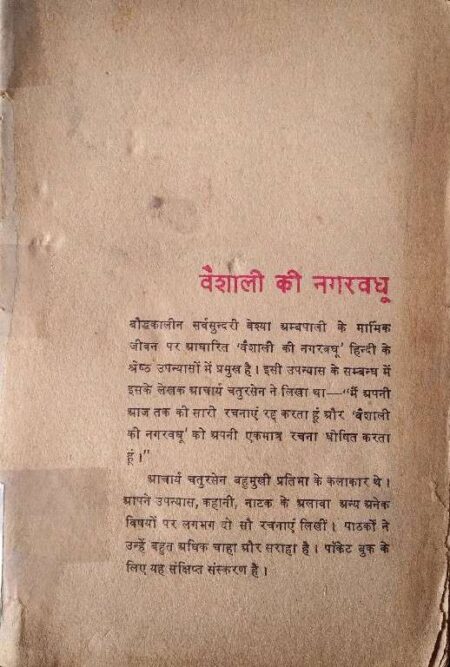 वैशाली की नगरवधू
बौद्धकालीन सर्वसुन्दरी वेश्या अम्बपाली के मार्मिक
जीवन पर आधारित 'वैशाली की नगरवधू' हिन्दी के
श्रेष्ठ उपन्यासों में प्रमुख है। इसी उपन्यास के सम्बन्ध में
इसके लेखक आचार्य चतुरसेन ने लिखा था—"मैं अपनी
आज तक की सारी रचनाएं रद्द करता हूं और 'वैशाली
की नगरवधू' को अपनी एकमात्र रचना घोषित करता
हूं।"
आचार्य चतुरसेन बहुमुखी प्रतिभा के कलाकार थे।
आपने उपन्यास, कहानी, नाटक के अलावा अन्य अनेक
विषयों पर लगभग दो सौ रचनाएं लिखीं। पाठकों ने
उन्हें बहुत अधिक चाहा और सराहा है। पॉकेट बुक के
लिए यह संक्षिप्त संस्करण है।